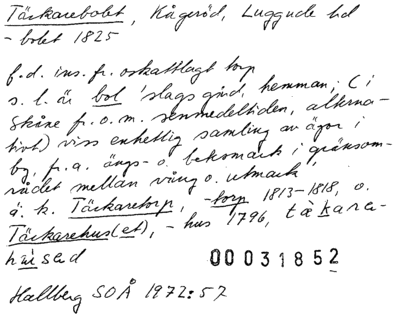 Täckarebolet, Kågeröd, Luggude hd
- bolet 1825
f.d. ins. fr. oskattlagt torp
s. l. är bol 'slags gård, hemman; (i
Skåne fr. o. m. senmedeltiden, alterna-
tivt) viss enhetlig samling av ägor i
by, fr. a. ängs- o. betesmark i gränsom-
rådet mellan vång o. utmark
ä. k. Täckaretorp, -torp 1813-1818, o.
Täckarehus(et), -hus 1796, täkara-
húsed
00031852
Hallberg SOÅ 1972:57